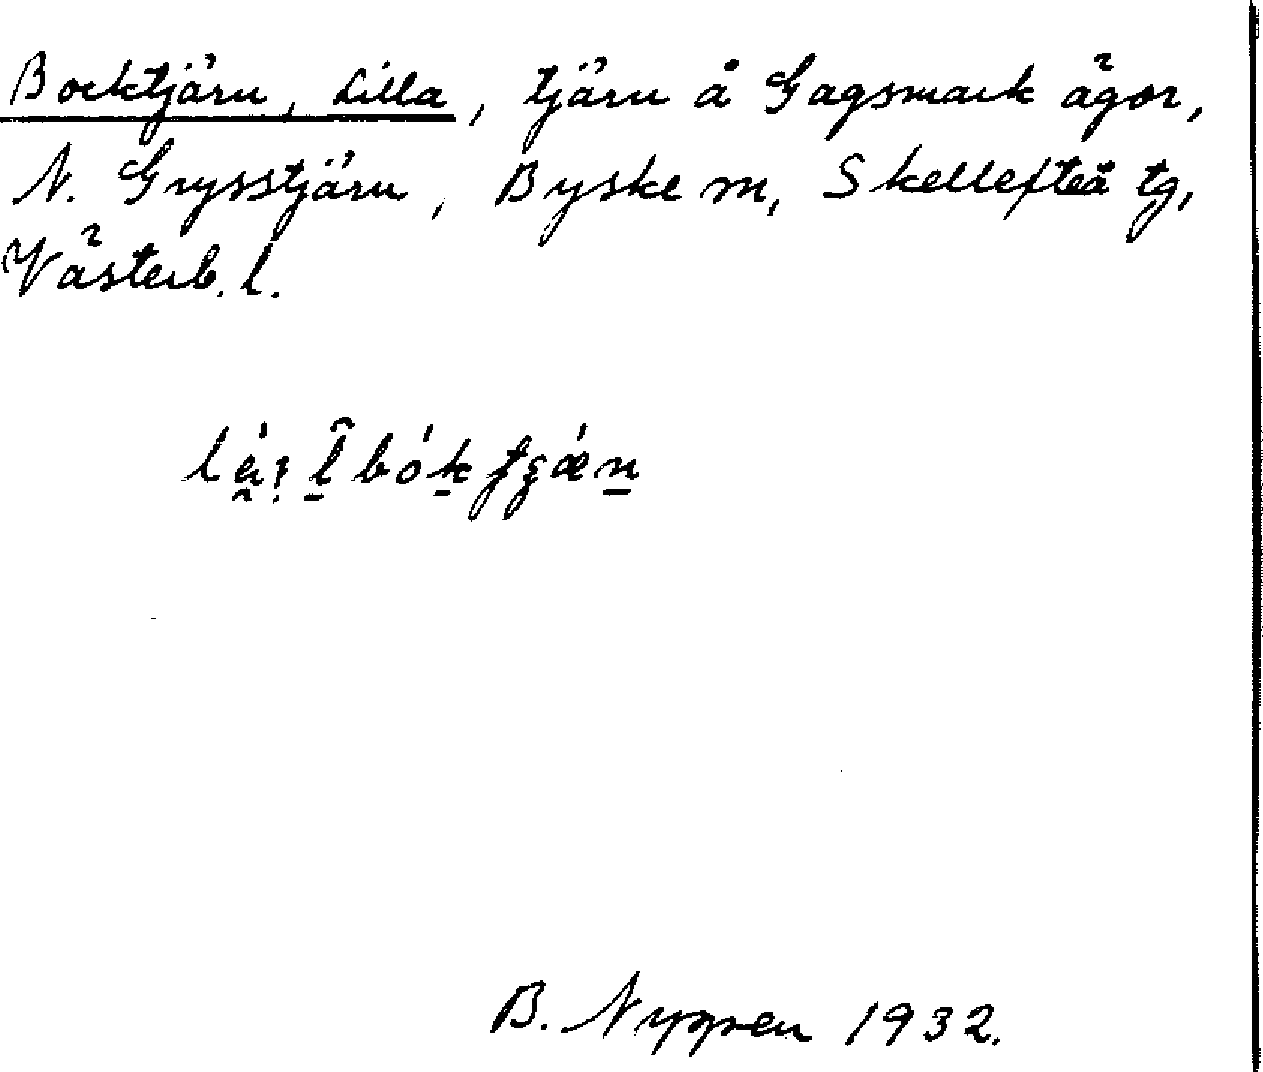 Bocktjärn, Lilla, tjärn å Gagsmark ägor,
N. Grysstjärn, Byske sn, Skellefteå tg,
Västerb. l.
B. Nygren 1932.